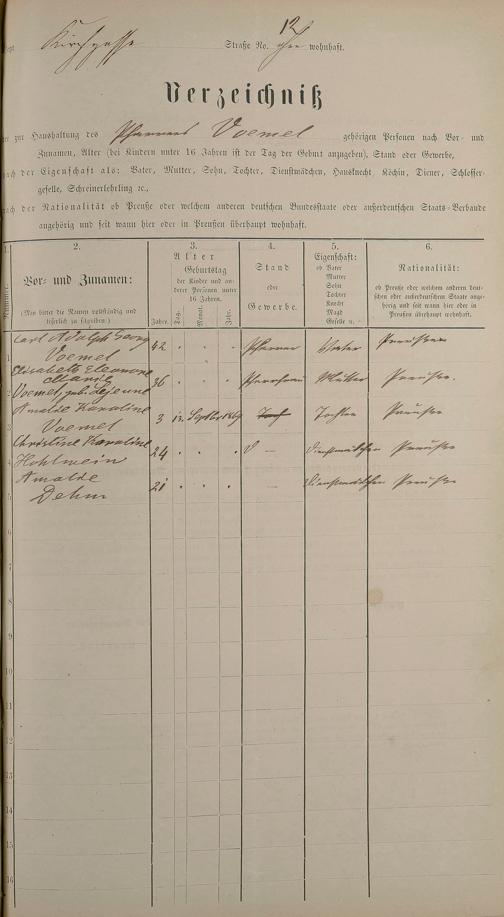 Kirchgasse Straße No. 12 wohnhaft.
Verzeichniß
der zur Haushaltung des Pfarrers Voemel gehörigen Personen nach Vor- und
Zunamen, Alter (bei Kindern unter 16 Jahren ist der Tag der Geburt anzugeben), Stand oder Gewerbe,
nach der Eigenschaft als: Vater, Mutter, Sohn, Tochter, Dienstmädchen, Hausknecht, Köchin, Diener, Schlosser-
geselle, Schreinerlehrling ꝛc.,
nach der Nationalität ob Preuße oder welchem anderen deutschen Bundesstaate oder außerdeutschen Staats-Verbande
angehörig und seit wann hier oder in Preußen überhaupt wohnhaft.
1. 2. 3. 4. 5. 6.
Nummer.
Vor- und Zunamen:
(Man bittet die Namen vollständig und
leserlich zu schreiben.)
Alter
Jahre.
Geburtstag
der Kinder und an-
derer Personen unter
16 Jahren.
Tag. Monat. Jahr.
Stand
oder
Gewerbe.
Eigenschaft:
ob Vater
Mutter
Sohn
Tochter
Knecht
Magd
Geselle u.
Nationalität:
ob Preuße oder welchem andern deut-
schen oder außerdeutschen Staate ange-
hörig und seit wann hier oder in
Preußen überhaupt wohnhaft.
Carl Adolph Georg
1 Voemel 42 Pfarrer Vater Preusse
Elisabetha Eleonore
Marie
2 Voemel, geb. Lejeune 36 Pfarrfrau Mutter Preusse.
Amalde Karoline
3 Voemel 3 12. Septbr 1869 Tochter Preusse
Christine Karoline
4 Hohlwein 24 Dienstmädchen Preusse
Amalde
5 Dehm 21 Dienstmädchen Preusse
6
7
8
9
10
11
12
13
14
15
16